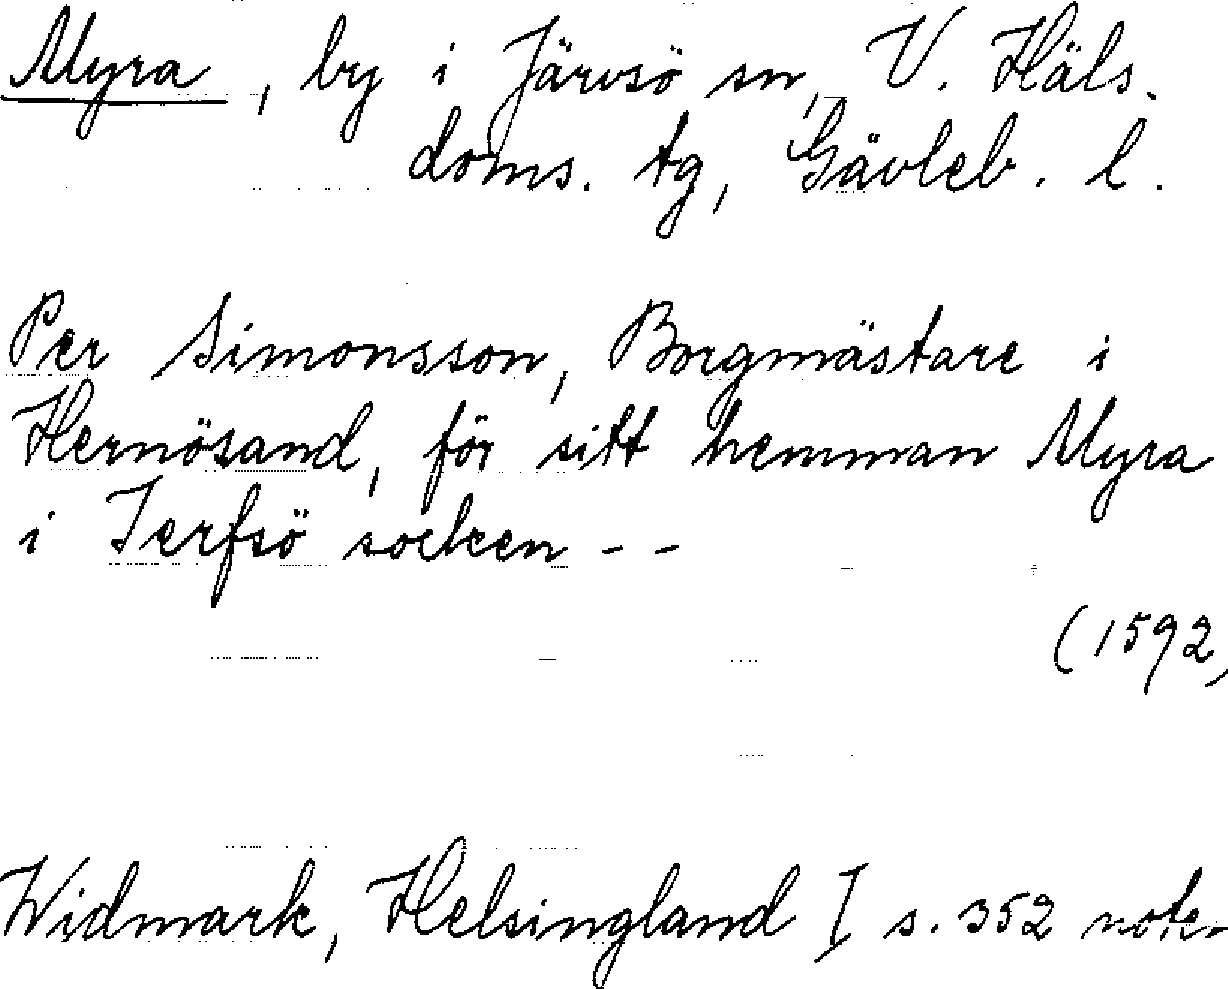 Myra, by i Järvsö sn, V. Häls.
doms. tg, Gävleb. l.
Per Simonsson, Borgmästare i
Hernösand, för sitt hemman Myra
i Jerfsö socken - -
(1592,
Widmark, Helsingland I s. 352 note-